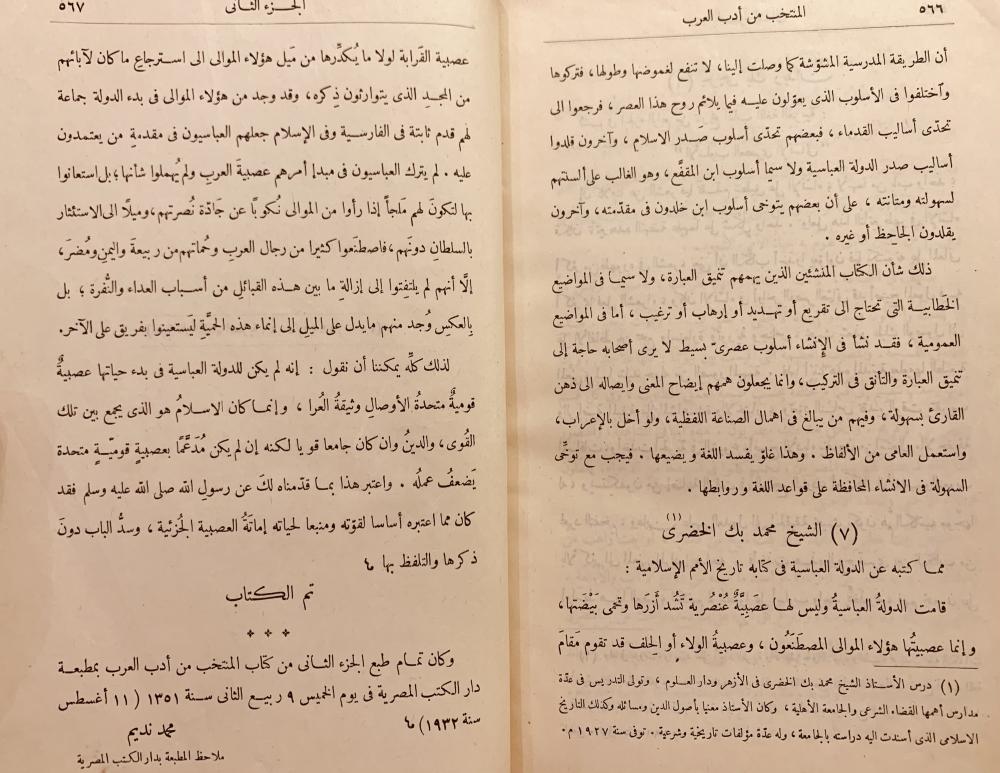 ٥٦٦
المنتخب من أدب العرب
أن الطريقة المدرسية المشوّشة كما وصلت إلينا، لا تنفع لغموضها وطولها، فتركوها
وآختلفوا فى الأسلوب الذى يعوّلون عليــه فيما يلائم روح هذا العصر، فرجعوا الى
تحدّى أساليب القدماء، فبعضهم تحدّى أسلوب صَـدر الاسلام، وآخرون قلدوا
أساليب صدر الدولة العباسية ولا سيما أسلوب ابن المقفَّع، وهو الغالب على ألسنتهم
لسهولته ومتانته، على أن بعضهم يتوخى أسلوب ابن خلدون فى مقدّمته، وآخرون
يقلدون الجاحظ أو غيره.
ذلك شأن الكتاب المنشئين الذين يهمهم تنميق العبارة، ولا سيمـا فى المواضيع
الخَطابيــة التى تحتاج الى تقريع أو تهـديد أو إرهاب أو ترغيب، أما فى المواضيع
العمومية، فقــد نشأ فى الإنشاء أسلوب عصرىّ بسيط لا يرى أصحابه حاجة إلى
تنميق العبارة والتأنق فى التركيب، وانما يجعلون همهم إيضاح المعنى وإيصاله الى ذهن
القارئ بسهولة، وفيهم من يبالغ فى اهمال الصناعة اللفظية، ولو أخل بالإعراب،
واستعمل العامى من الألفاظ. وهذا غلوّ يفسد اللغة ويضيعها. فيجب مع توخّى
السهولة فى الانشاء المحافظة على قواعد اللغة وروابطها.
(٧) الشيخ محمد بك الخضرى (١)
ممـا كتبه عن الدولة العباسية فى كتابه تاريخ الأمم الإسلامية :
قامت الدولةُ العباسيةُ وليس لها عصَبِيَّةٌ عُنْصُرية تَشُد أَزرَها وتحمى بَيْضَتها،
وإنما عصبيتُها هؤلاء الموالى المصطَنَعُون، وعصبيةُ الولاءِ أو الحِلف قد تقوم مَقامَ
(١) درس الأســتاذ الشيخ محمد بك الخضرى فى الأزهر ودار العلــوم، وتولى التدريس فى عدّة
مدارس أهمها القضاء الشرعى والجامعة الأهلية، وكان الأستاذ معنيا بأصول الدين ومسائله وكذلك التاريخ
الاسلامى الذى أسندت اليه دراسته بالجامعة، وله عدّة مؤلفات تاريخية وشرعية. توفى سنة ١٩٢٧ م.
الجزء الثانى
٥٦٧
عصبية القَرابة لولا ما يُكدِّرها من مَيل هؤلاء الموالى الى استرجاع ما كان لآبائهم
من المجـدِ الذى يتوارثون ذِكره، وقد وجد من هؤلاء الموالى فى بدء الدولة جماعة
لهم قدم ثابتة فى الفارسـية وفى الإسلام جعلهم العباسيون فى مقدمةِ من يعتمدون
عليه. لم يترك العباسيون فى مبدإ أمرهم عصبيةَ العربِ ولم يُهملوا شأنها؛ بل استعانوا
بها لتكونَ لهم مَلجأً إذا رأوا من الموالى نُكوبًا عن جَادّة نُصرتهم، وميلًا الى الاستئثار
بالسلطانِ دونَهم، فاصطَنَعوا كثيرا من رجال العربِ وحُماتهم من ربيعةَ واليمن ومُضَرَ،
إلَّا أنهم لم يلتفِتوا إلى إزالةِ ما بين هــذه القبائلِ من أسـباب العداء والنُّفرة؛ بل
بِالعكسِ وُجد منهم ما يدل على الميلِ إلى إنماء هذه الحميَّةِ ليَستعينوا بفريق على الآخر.
لذلك كلِّه يمكننا أن نقول : إنه لم يكن للدولة العباسية فى بدء حياتها عصبيةٌ
قوميةٌ متحدةُ الأوصالِ وثيقةُ العُرا، وإنمـا كان الاسلامُ هو الذى يجمع بين تلك
القُوى، والدينُ وان كان جامعا قويا لكنه إن لم يكن مُدَعَّمًا بعصبيةٍ قوميّـةٍ متحدة
يَضعفُ عملُه. واعتبر هذا بمـا قدّمناه لكَ عن رسولِ الله صلى الله عليه وسلم فقد
كان مما اعتبره أساسا لقوّته ومنبعا لحياته إماتَةُ العصبية الجُزئية، وسدُّ الباب دونَ
ذكرها والتلفظ بها
تم الكتاب
وكان تمـام طبع الجزء الثانى من كتاب المنتخب من أدب العرب بمطبعــة
دار الكتب المصرية فى يوم الخميس ٩ ربيع الثانى ســنة ١٣٥١ (١١ أغسطس
سنة ١٩٣٢)
محمد نديم
ملاحظ المطبعة بدار الكتب المصرية